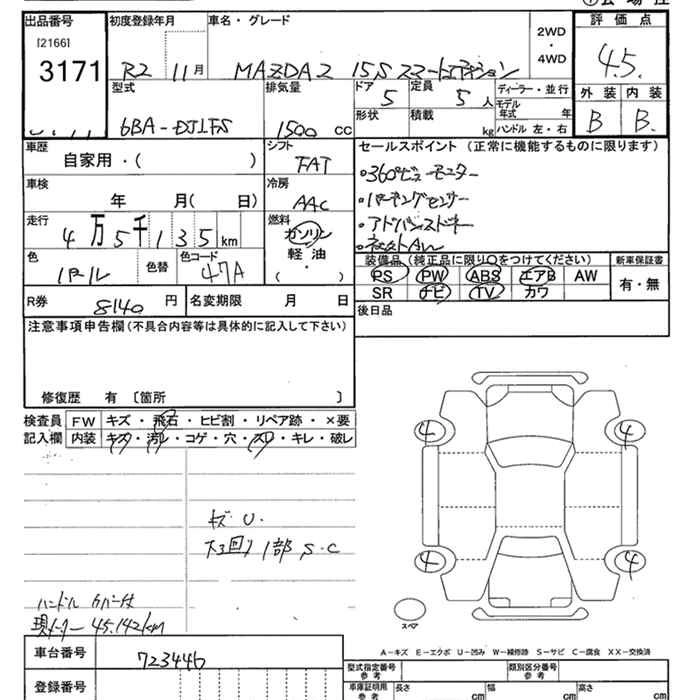 出品番号 初度登録年月 車名・グレード 2WD・4WD 評価点
[2166]
3171 R2 11月 MAZDA2 15S スマートエディション 4.5
型式 排気量 ドア 5 定員 5人 ディーラー・並行 外装 内装
6BA-DJLFS 1500cc 形状 積載 kg モデル年式 年 B B
ハンドル 左・右
車歴 シフト セールスポイント (正常に機能するものに限ります)
自家用・( ) FAT ・360°ビューモニター
車検 冷房 ・パーキングセンサー
年 月( 日) AAC
走行 燃料
4万5千135km ガソリン
色 色替 色コード 軽油 装備品 (純正品に限り○をつけてください) 新車保証書
パール 47A ・( ) PS PW ABS エアB AW 有・無
R券 8140円 名変期限 月 日 SR ナビ TV カワ
注意事項申告欄(不具合内容等は具体的に記入して下さい) 後日品
修復歴 有 〔箇所 〕
検査員 FW キズ・飛石・ヒビ割・リペア跡・×要
記入欄 内装 キズ・汚レ・コゲ・穴・スレ・キレ・破レ
4 4
キズ U.
下回り 1部 S.C
4 4
ハンドル カバー付
現メーター 45,142km
スペア
A-キズ E-エクボ U-凹み W-線修跡 S-サビ C-腐食 XX-交換済
車台番号 723446
登録番号
型式指定番号 参考 類別区分番号 参考
車庫証明用 参考 長さ cm 幅 cm 高さ cm